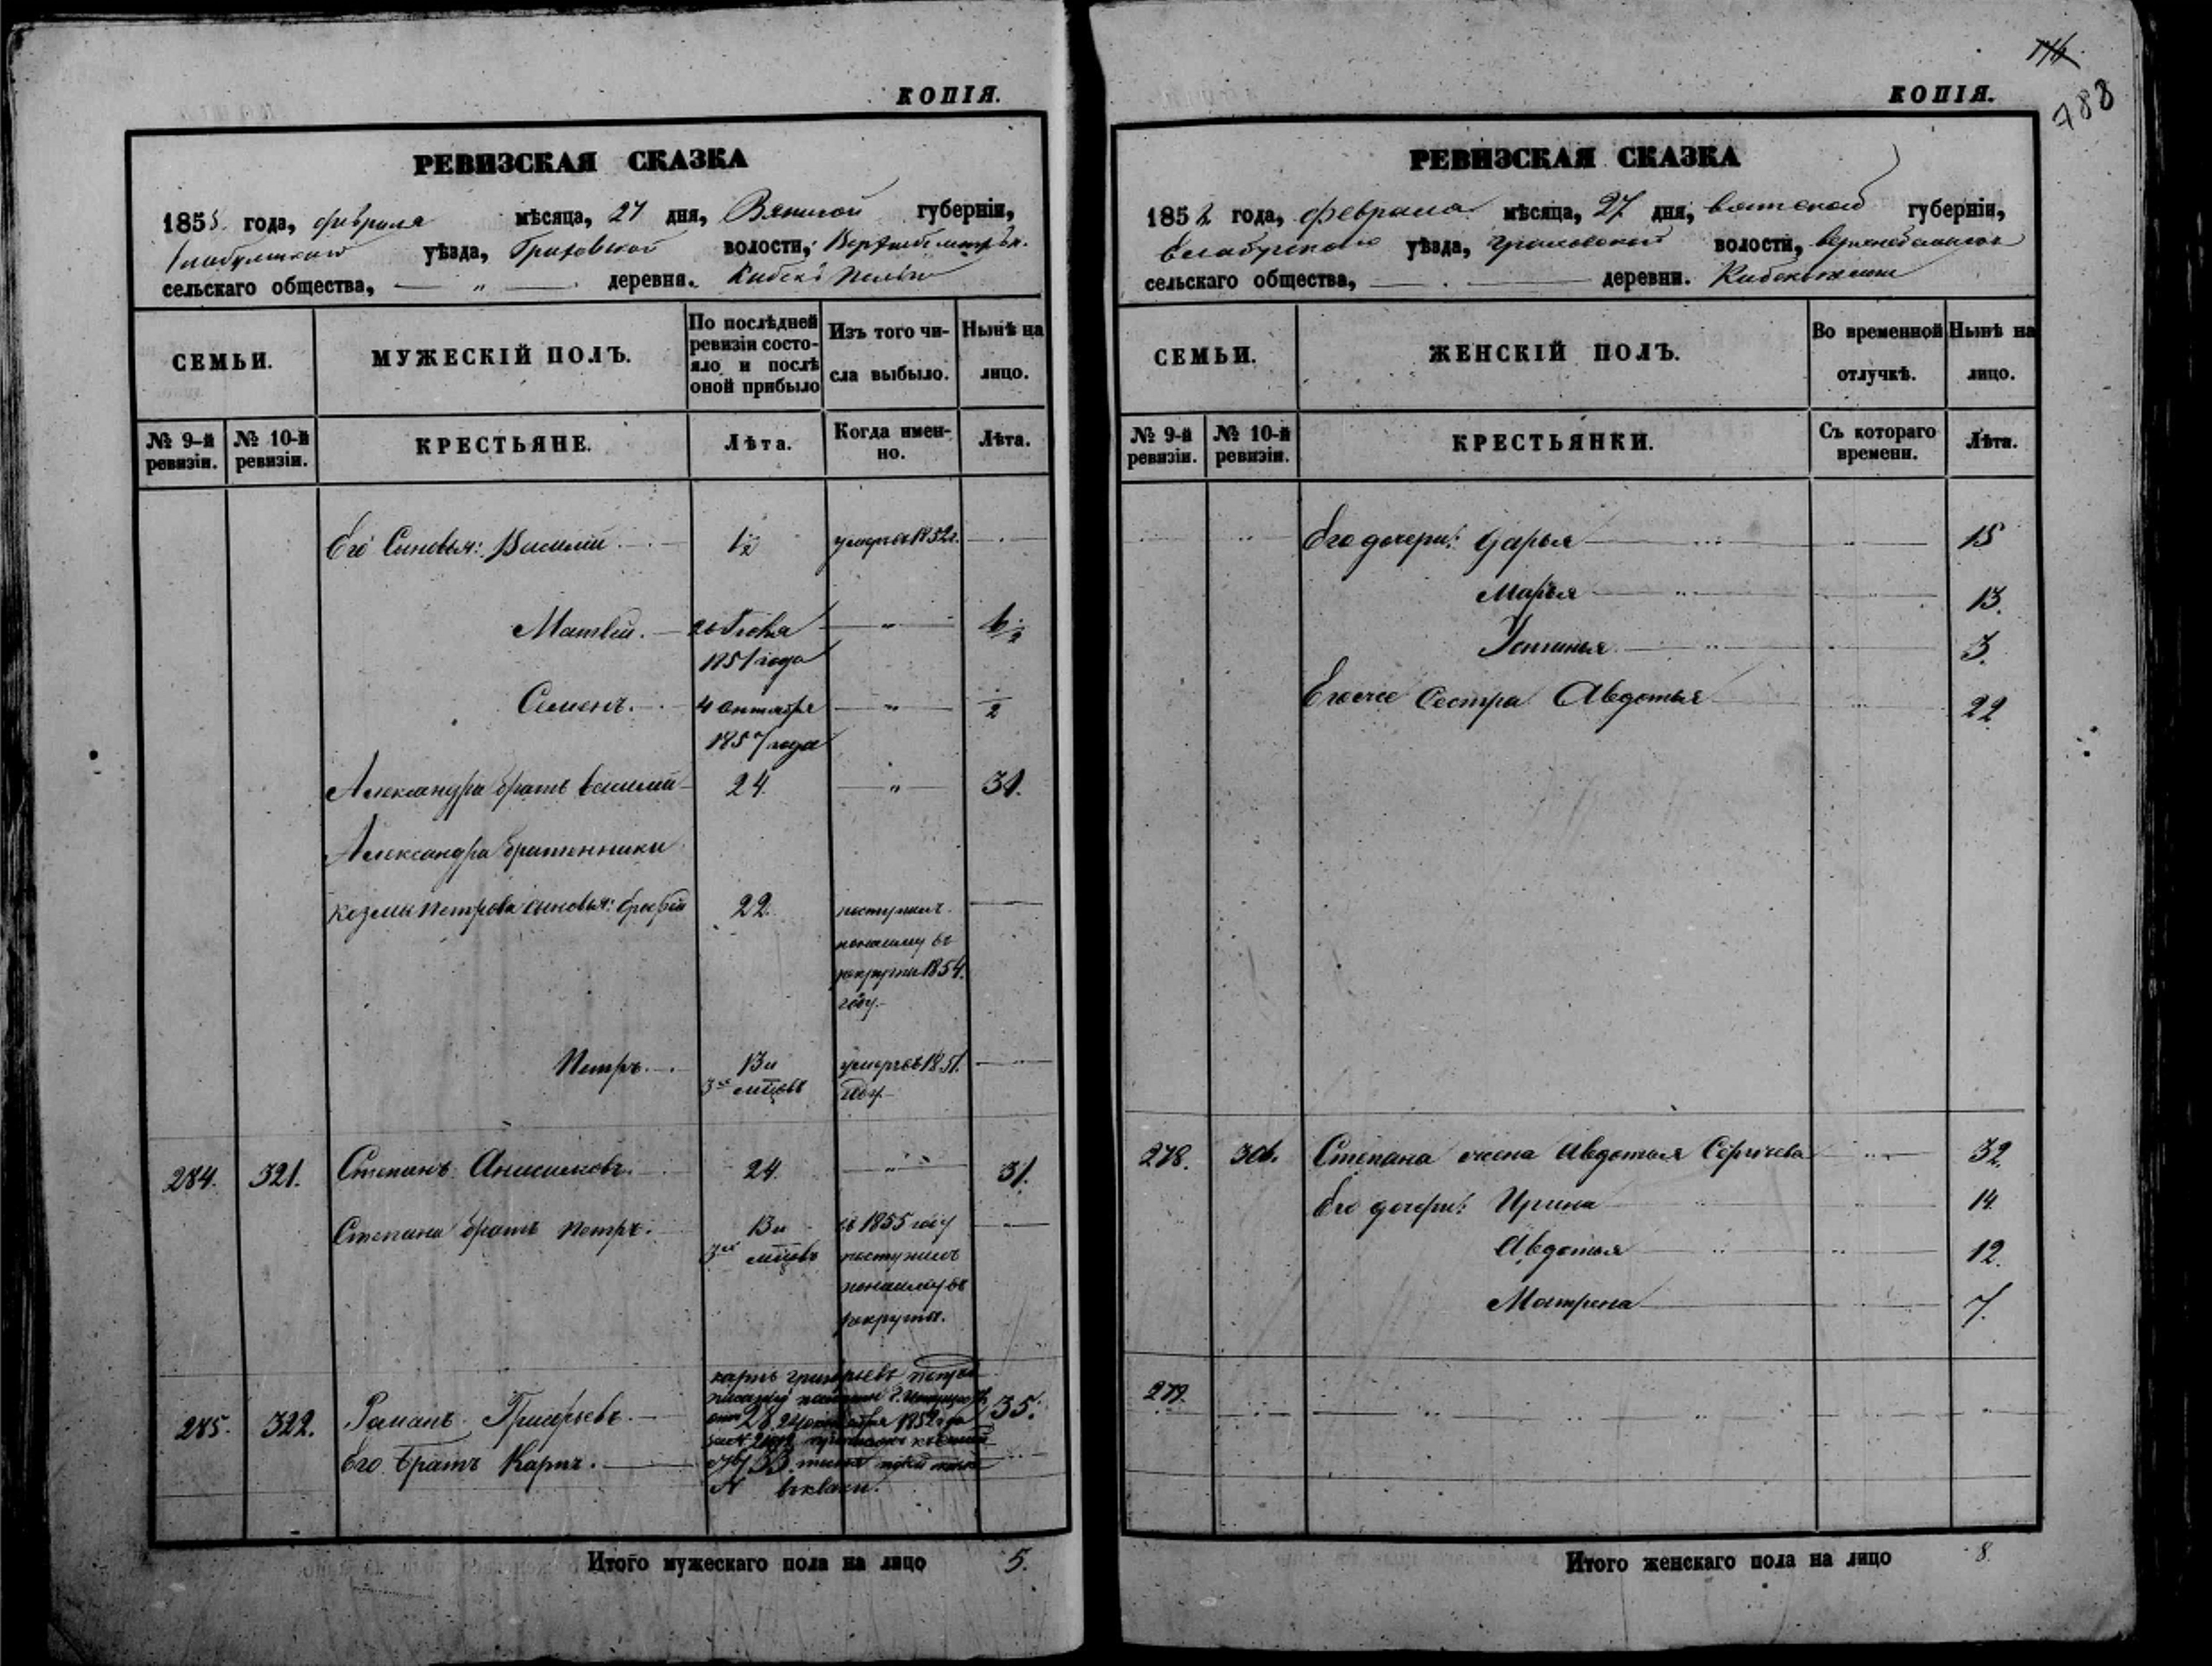 КОПІЯ.
РЕВИЗСКАЯ СКАЗКА
185 года, февраля мѣсяца, 27 дня, Вятской губерніи,
уѣзда, волости,
сельскаго общества, — " — деревни.
СЕМЬИ.
МУЖЕСКІЙ ПОЛЪ.
По послѣдней ревизіи состояло и послѣ оной прибыло
Изъ того числа выбыло.
Нынѣ на лицо.
№ 9-й ревизіи.
№ 10-й ревизіи.
КРЕСТЬЯНЕ.
Лѣта.
Когда именно.
Лѣта.
Его Сыновья: Василій 1/2 умеръ въ 1852 г.
Матвей.
1851 года
Семенъ. 4 октября — " — 1/2
1857 года
Александра братъ Василій 24 — " — 31.
Александра братенники
Козмы Петрова сыновья: 22. поступилъ
по найму въ
рекруты 1854.
году.
Петръ. 13 и умеръ въ 1851.
3 мѣцовъ году.
284. 321. Степанъ Анисимовъ. 24. — " — 31.
Степана братъ Петръ. 13 и въ 1855 году
3 мѣцовъ поступилъ
по найму въ
рекруты.
карпъ григорьевъ
285. 322. Романъ Григорьевъ. 35.
1852 года
Его братъ Карпъ.
Итого мужескаго пола на лицо 5.
114
788
КОПІЯ.
РЕВИЗСКАЯ СКАЗКА
185 года, февраля мѣсяца, 27 дня, вятской губерніи,
уѣзда, волости,
сельскаго общества, — . — деревни.
СЕМЬИ.
ЖЕНСКІЙ ПОЛЪ.
Во временной отлучкѣ.
Нынѣ на лицо.
№ 9-й ревизіи.
№ 10-й ревизіи.
КРЕСТЬЯНКИ.
Съ котораго времени.
Лѣта.
Его дочери: Дарья 15
Марья 13.
Устинья 3.
Его же сестра Авдотья 22
278. Степана жена Авдотья Сергѣева 32.
Его дочери: Ирина 14.
Авдотья 12.
Матрена 7.
279.
Итого женскаго пола на лицо 8.